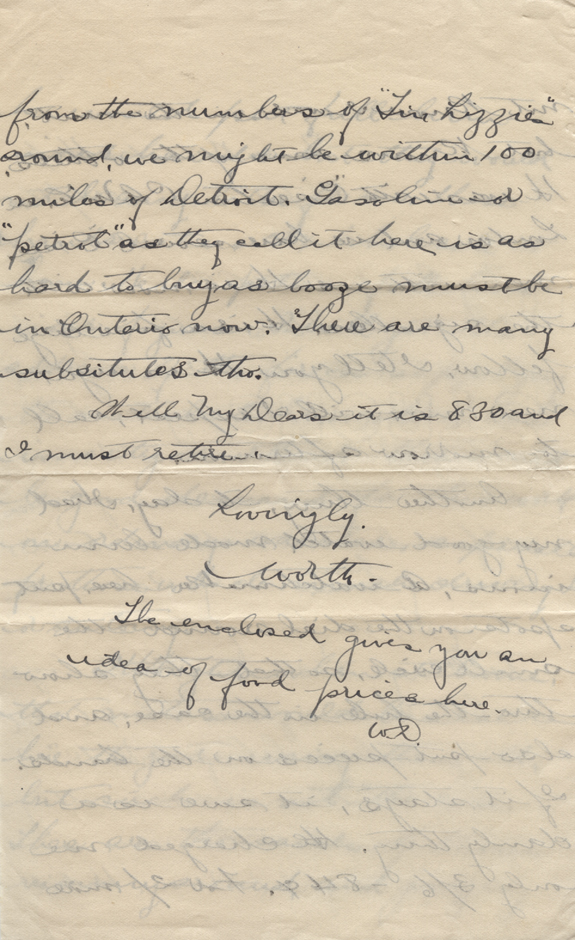 from the numbers of "Tin Lizzie"
around, we might be within 100
miles of Detroit. Gasoline or
"petrol" as they call it here is as
hard to buy as booze must be
in Ontario now. There are many
substitutes tho.
Well My Dears it is 830 and
I must retire.
Lovingly.
Worth.
The enclosed gives you an
idea of food prices here.
WD.